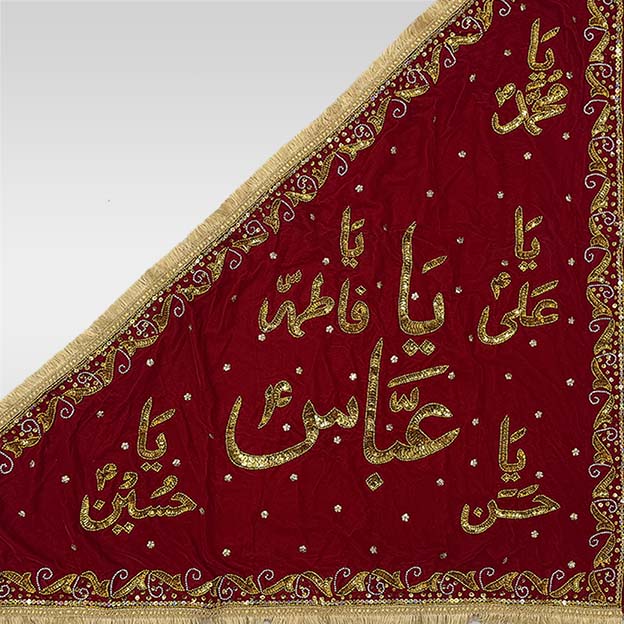 یا
محمدؐ
یا
علیؑ
یا
فاطمہؑ
یا
عباسؑ
یا
حسنؑ
یا
حسینؑ